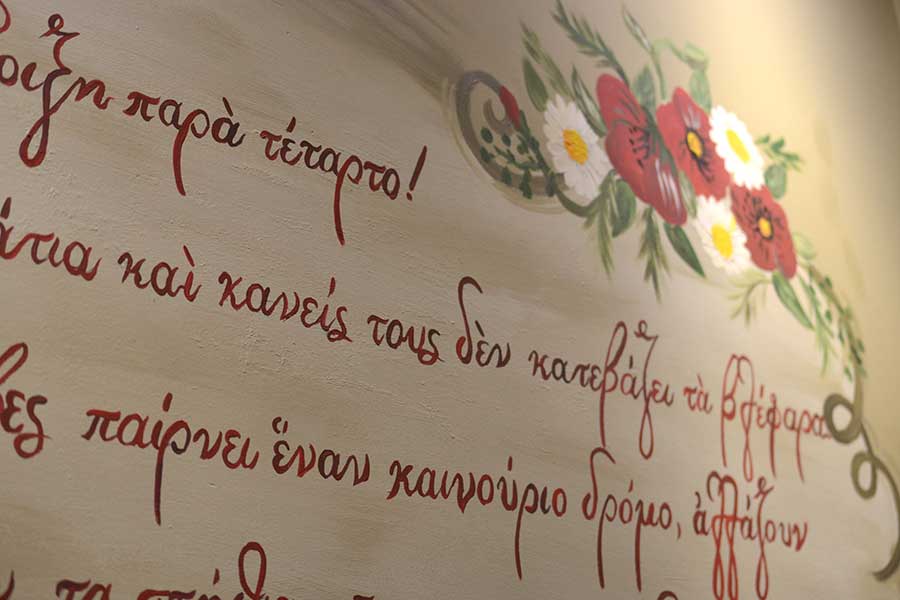 οιξη παρὰ τέταρτο!
άτια καὶ κανείς τους δὲν κατεβάζει τὰ βλέφαρα
βες παίρνει ἕναν καινούριο δρόμο, ἀλλάζουν
τα στήθ